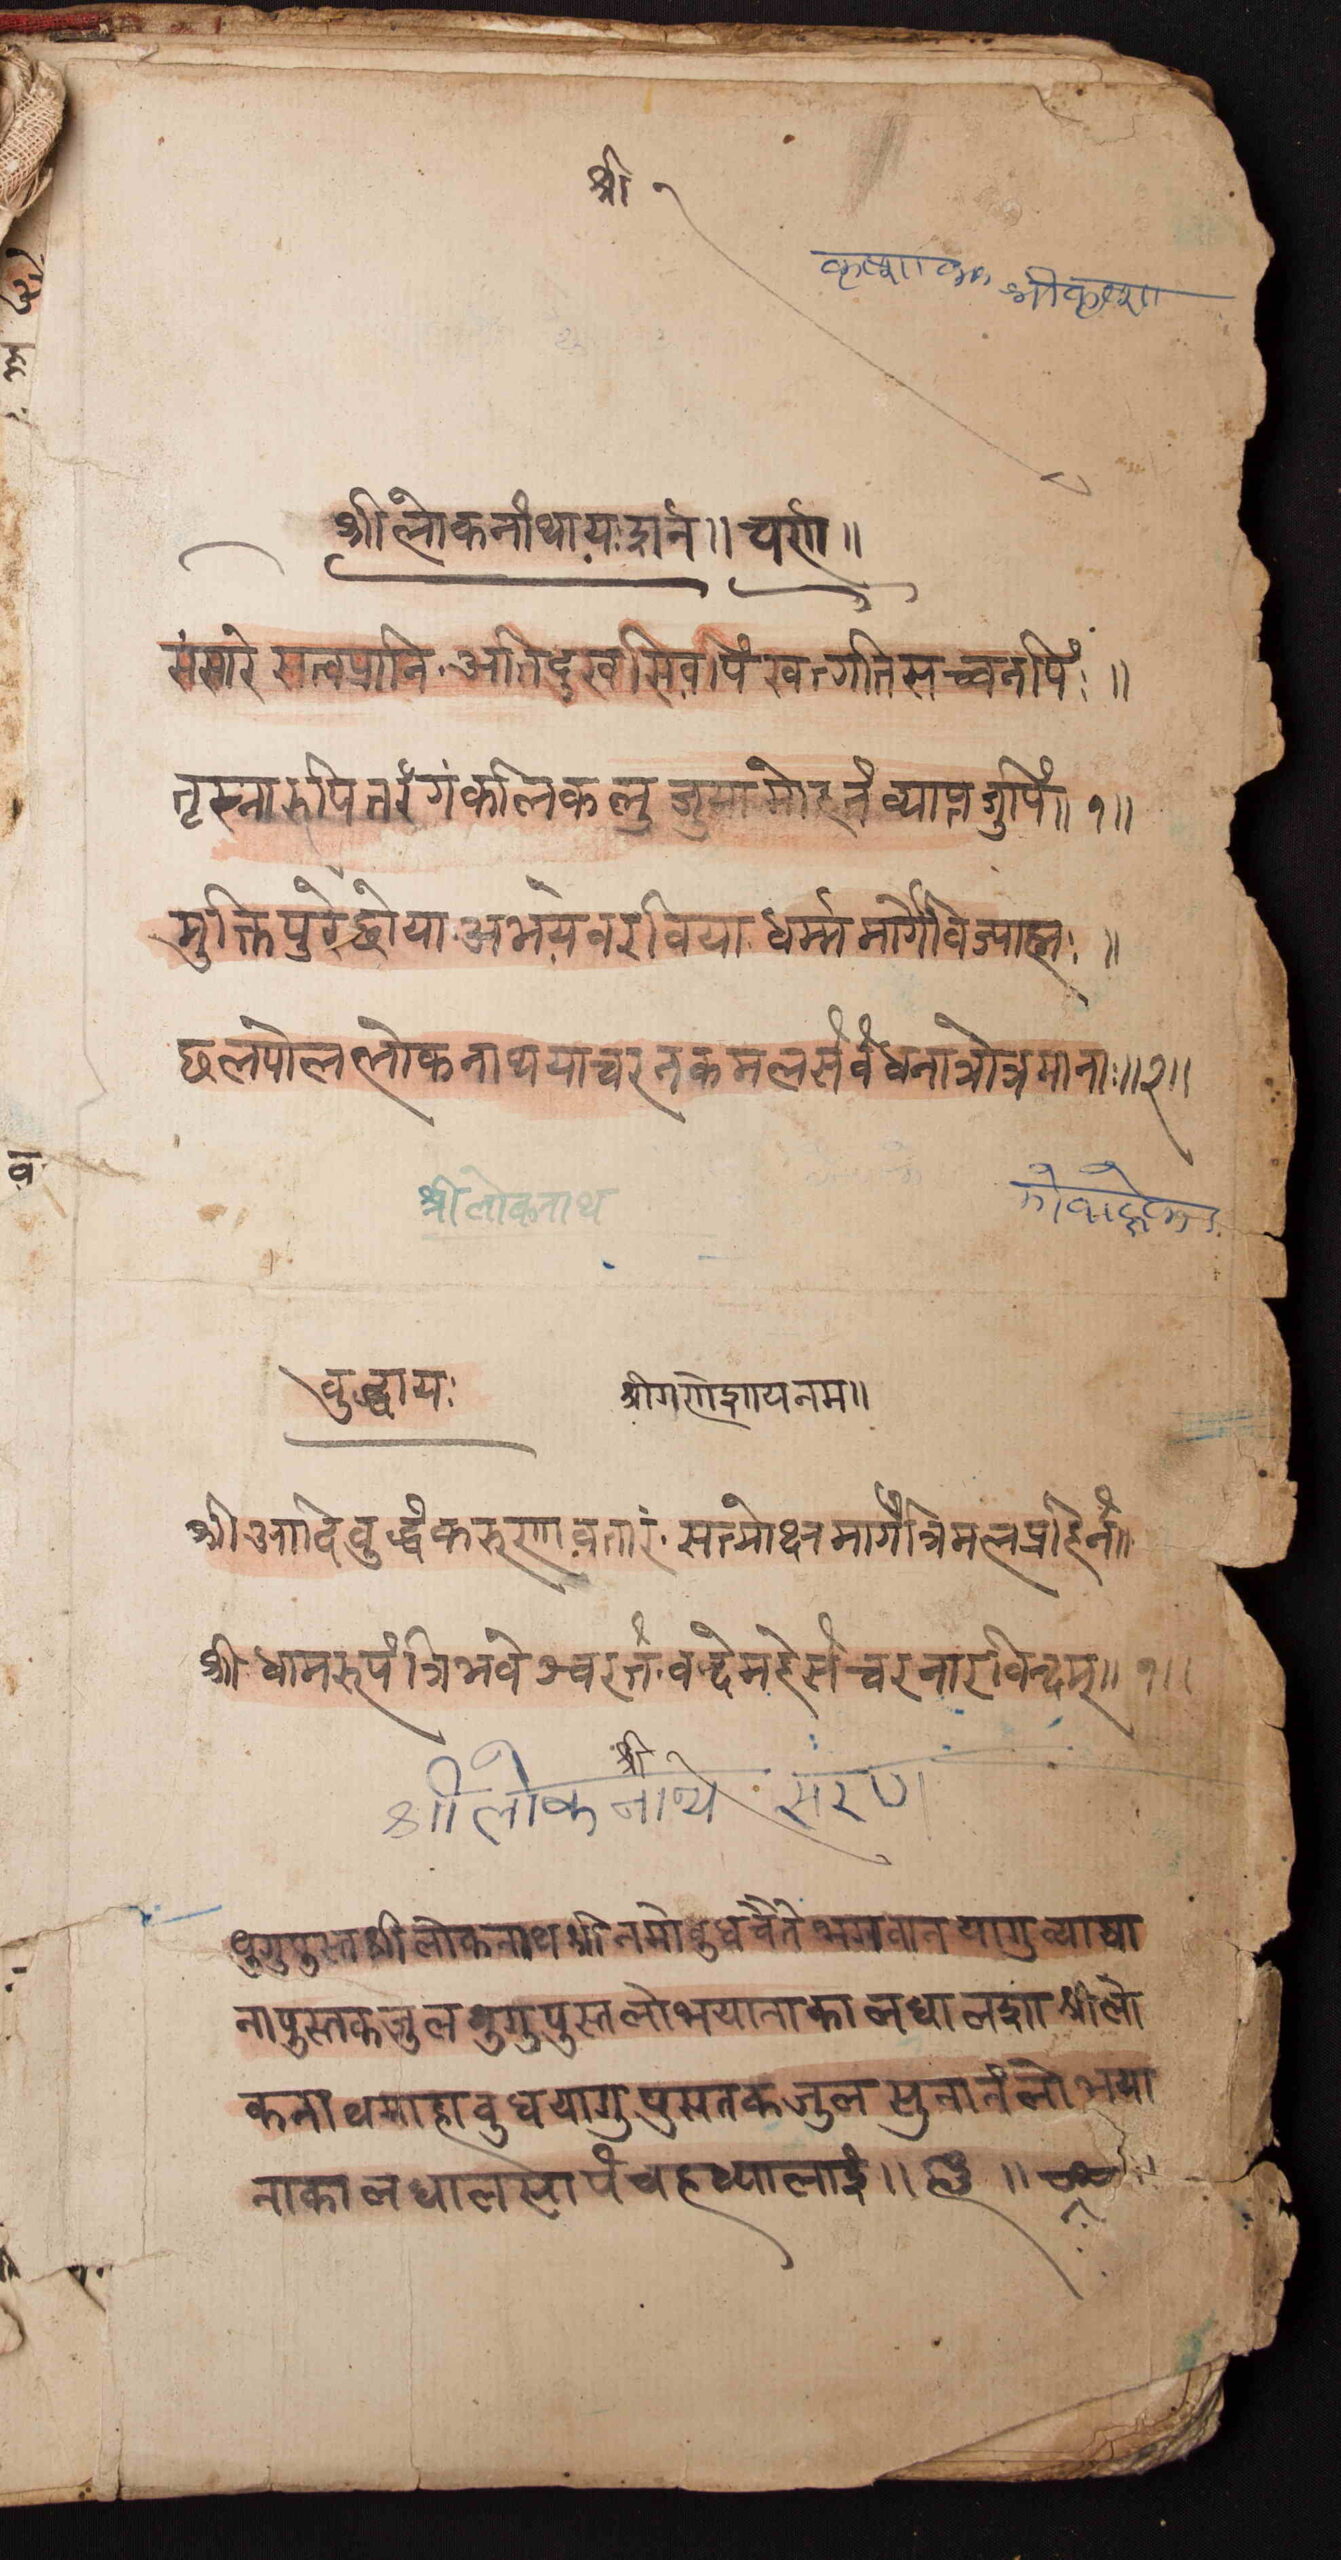 श्री
श्रीकृष्ण
श्रीलोकनाथाय दानं ॥ चर्णा ॥
संसारे सत्वप्रानि अतिदुखसिवपिं खतगतिसच्वनपिं: ॥
तृस्नारुपि तरंगं कलिकलु जुया मोहनं व्याप्त जुपिं ॥ १ ॥
मुक्तिपुरे छोया अभये वरविया धर्म्ममार्गं विज्याह्म: ॥
छलपोललोकनाथया चरनकमलसं वंधना त्रोत्रमाना: ॥ २ ॥
श्रीलोकनाथ
वुद्धाय:
श्रीगणेशाय नम ॥
श्रीआदिवुद्धं करुणावतारं सत्मोक्षमार्गं त्रिमलप्रहिनं ॥
श्रीधामरूपं त्रिभवेश्वरत्तं वन्देमहेसं च्चरनारविन्दम् ॥ १ ॥
श्री
श्रीलोकनाथे सरण
थुगुपुस्त श्रीलोकनाथ श्रीनमोवुध चैते भगवान यागु व्याया
नापुस्तक जुल थुगुपुस्त लोभयाना कालधालशा श्रीलो
कनाथमाहावुधयागु पुसतक जुल सुनानं लोभया
नाकालधालसा पंचहत्यालाई ॥ ॥